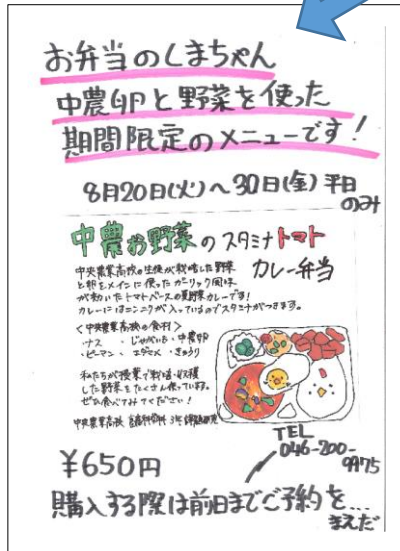 お弁当のしまちゃん
中農卵と野菜を使った
期間限定のメニューです!
8月20日(火)～30日(金)平日
のみ
中農お野菜のスタミナトマト
カレー弁当
中央農業高校の生徒が栽培した野菜
と卵をメインに使ったガーリック風味
が効いたトマトベースの夏野菜カレーです!
カレーにはニンニクが入っているのでスタミナがつきます。
<中央農業高校の食材>
・ナス ・じゃがいも ・中農卵
・ピーマン ・エダマメ ・きゅうり
私たちが授業で栽培・収穫
した野菜をたくさん使っています。
ぜひ食べてみてください!
中央農業高校
TEL
046-200-
9975
¥650円
購入する際は前日までご予約を...
まえだ